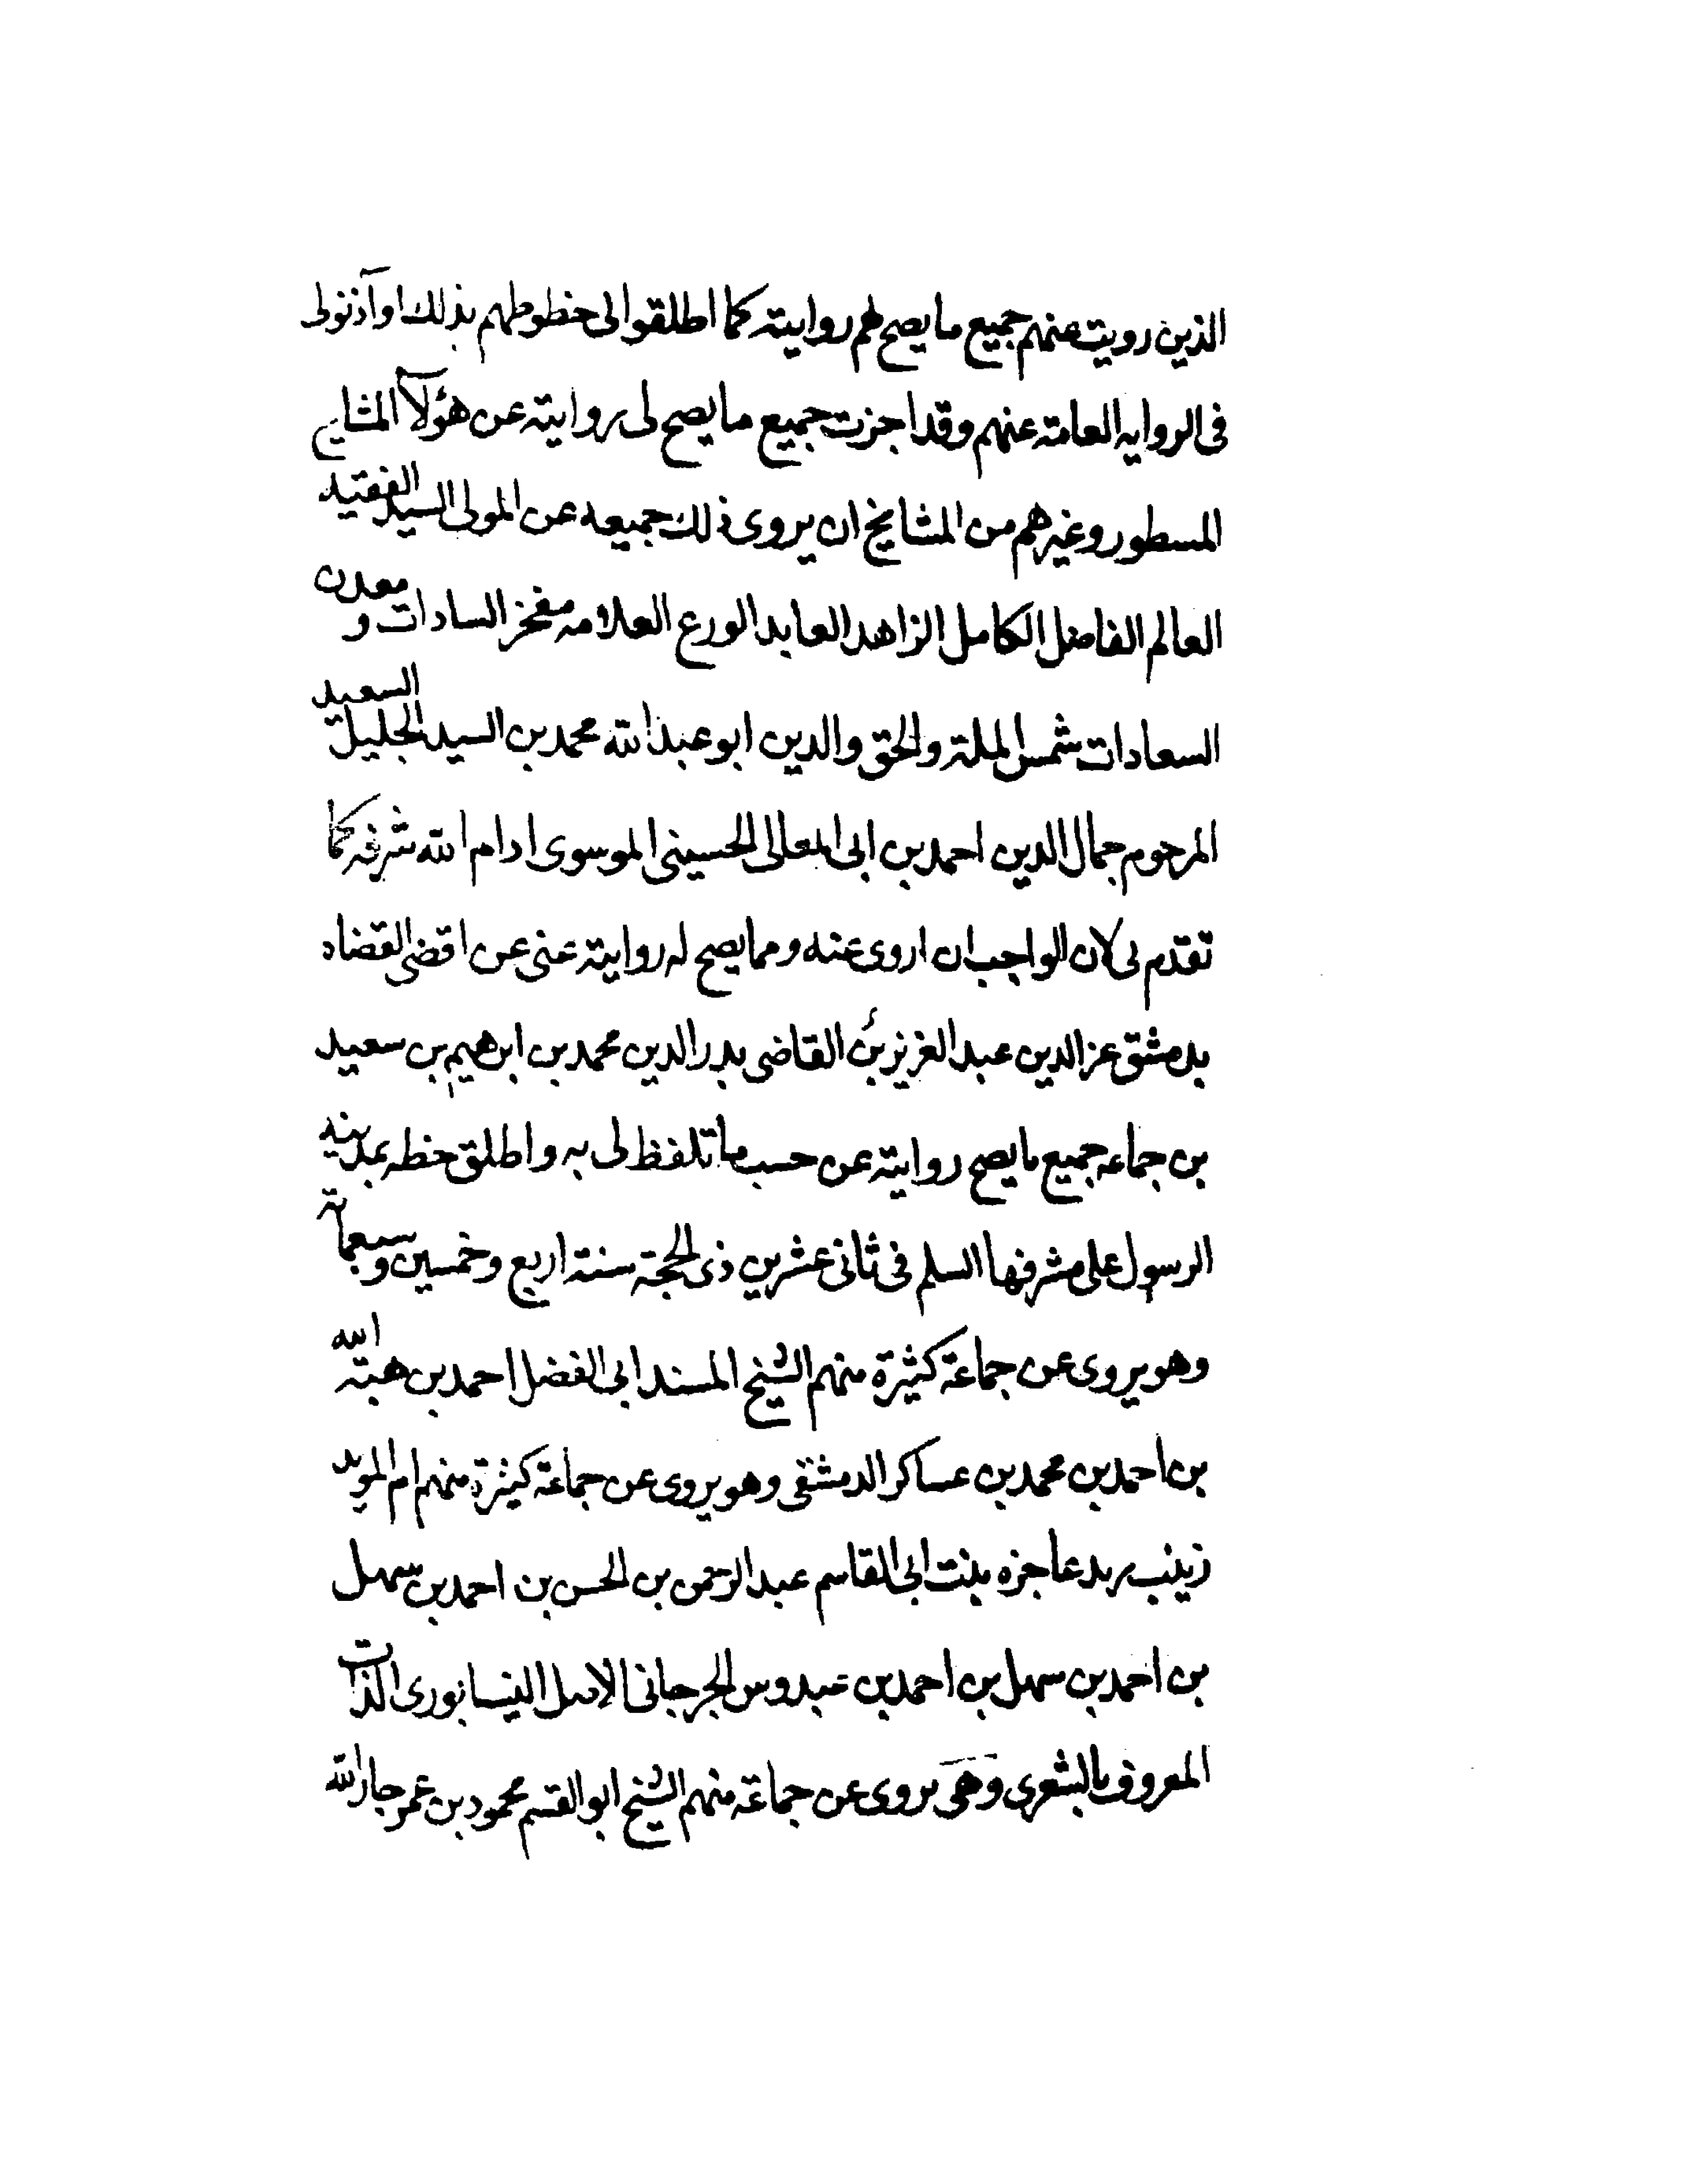 الذين رويت عنهم جميع ما يصح لهم روايته كما اطلقوا لى خطوطهم بذلك او آذنوا لى
فى الروايه العامة عنهم وقد اجزت جميع ما يصح لى روايته عن هؤلآ المشايخ
المسطور وغيرهم من المشايخ ان يروى ذلك جميعه عن المولى السيد الفقيد
العالم الفاضل الكامل الزاهد العابد الورع العلامه مفخر السادات و معدن
السعادات شمس الملة والحق والدين ابو عبد الله محمد بن السيد الجليل السعيد
المرحوم جمال الدين احمد بن ابى المعالى الحسينى الموسوى ادام الله شرفه كما
تقدم لى لان الواجب ان اروى عنه ومما يصح له روايته عنى عن اقضى القضاه
بدمشق عز الدين عبد العزيز بن القاضى بدر الدين محمد بن ابرهيم بن سعيد
بن جماعه جميع ما يصح روايته عن حسب ما تلفظ لى به واطلق خطه بمدينه
الرسول على مشرفها السلم فى ثانى عشرين ذى الحجة سنة اربع وخمسين وسبعماية
وهو يروى عن جماعة كثيرة منهم الشيخ المسند ابى الفضل احمد بن هبة الله
بن احمد بن محمد بن عساكر الدمشقى وهو يروى عن جماعة كثيرة منهم ام المويد
زينب بنت ابى القاسم عبد الرحمن بن الحسن بن احمد بن سهل
بن احمد بن سهل بن احمد بن عبدوس الجرجانى الاصل النيسابورى الذات
المعروف بالشعرى وهى يروى عن جماعة منهم الشيخ ابو القسم محمود بن عمر جار الله